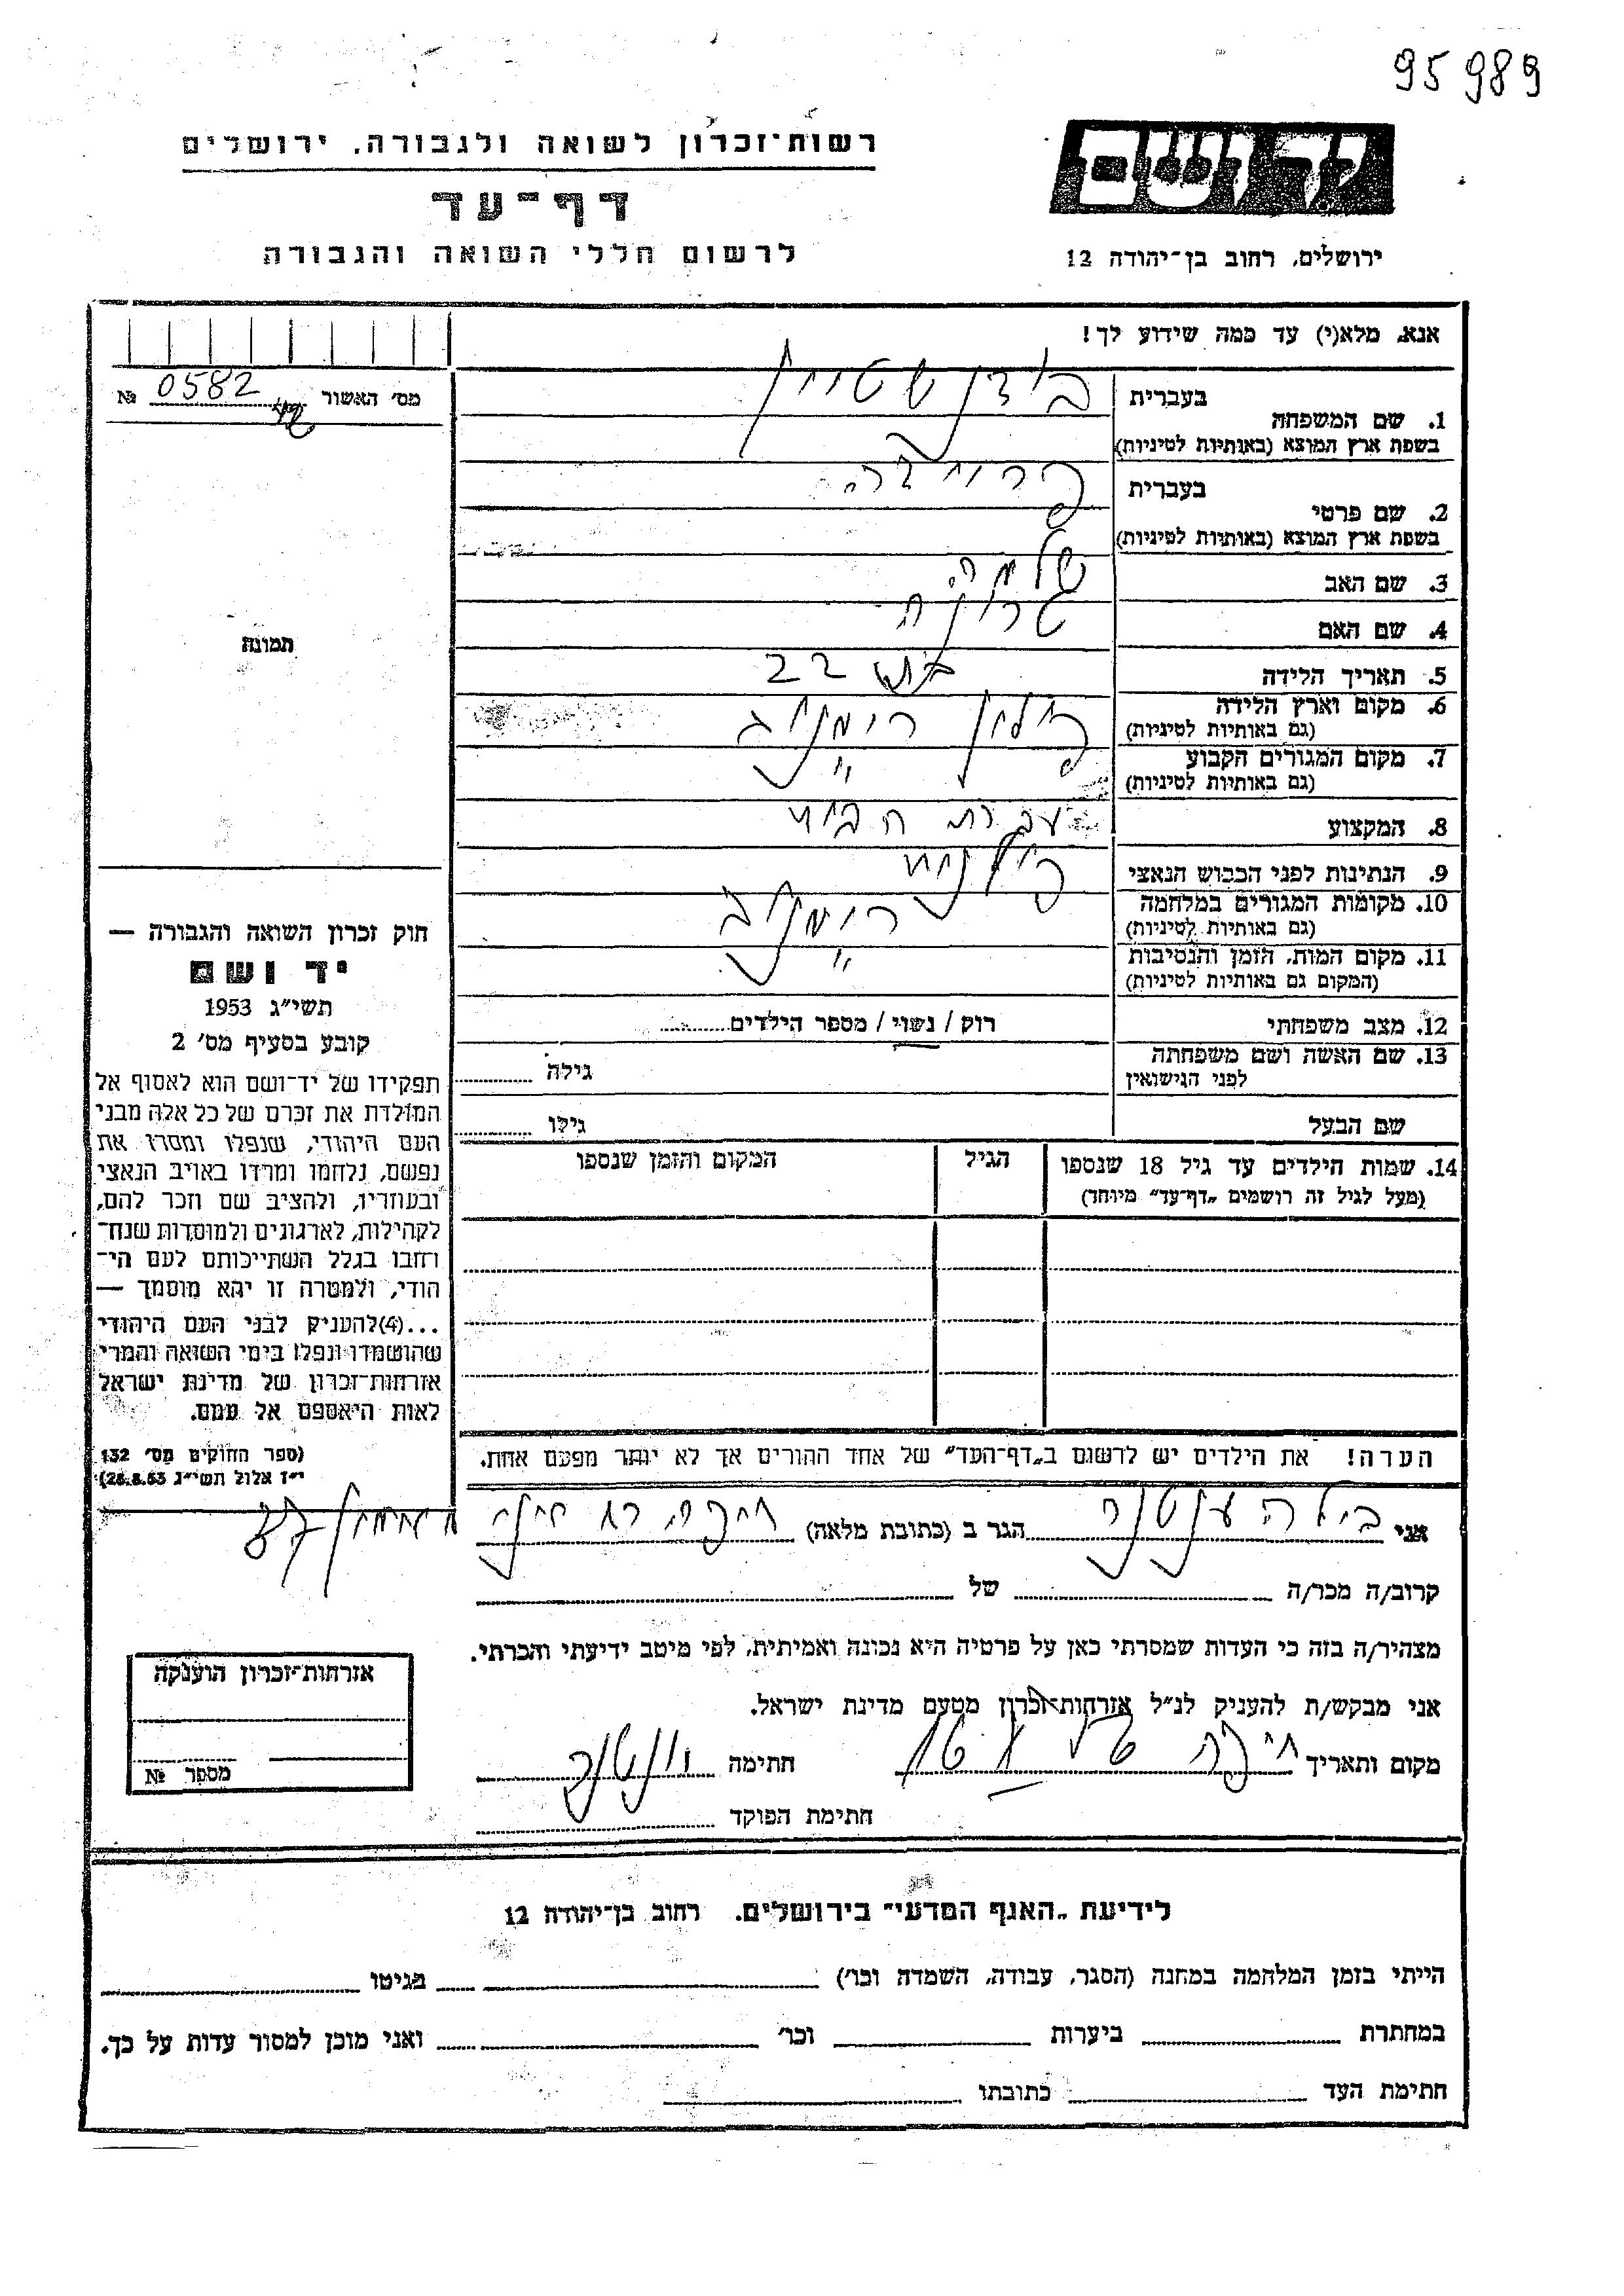 95989
רשות־זכרון לשואה ולגבורה, ירושלים
דף־עד
לרשום חללי השואה והגבורה
יד ושם
ירושלים, רחוב בן־יהודה 12
אנא, מלא(י) עד כמה שידוע לך!
מס׳ האשור 0582 №
1. שם המשפחה
בעברית
בשפת ארץ המוצא (באותיות לטיניות)
2. שם פרטי
בעברית
פרוידה
בשפת ארץ המוצא (באותיות לטיניות)
3. שם האב שלמה
4. שם האם
5. תאריך הלידה בת 22
6. מקום וארץ הלידה
(גם באותיות לטיניות)
פולין רימנוב
7. מקום המגורים הקבוע
(גם באותיות לטיניות)
״
8. המקצוע עקרת הבית
9. הנתינות לפני הכבוש הנאצי פולנית
10. מקומות המגורים במלחמה
(גם באותיות לטיניות)
רימנוב
11. מקום המות, הזמן והנסיבות
(המקום גם באותיות לטיניות)
״
12. מצב משפחתי רוק / נשוי / מספר הילדים
13. שם האשה ושם משפחתה
לפני הנישואין
גילה
שם הבעל גילו
14. שמות הילדים עד גיל 18 שנספו הגיל המקום והזמן שנספו
(מעל לגיל זה רושמים „דף־עד״ מיוחד)
הערה! את הילדים יש לרשום ב„דף־העד״ של אחד ההורים אך לא יותר מפעם אחת.
תמונה
חוק זכרון השואה והגבורה —
יד ושם
תשי״ג 1953
קובע בסעיף מס׳ 2
תפקידו של יד־ושם הוא לאסוף אל
המולדת את זכרם של כל אלה מבני
העם היהודי, שנפלו ומסרו את
נפשם, נלחמו ומרדו באויב הנאצי
ובעוזריו, ולהציב שם וזכר להם,
לקהילות, לארגונים ולמוסדות שנח־
רחבו בגלל השתייכותם לעם הי־
הודי, ולמטרה זו יהא מוסמך —
...(4)להעניק לבני העם היהודי
שהושמדו ונפלו בימי השואה והמרי
אזרחות־זכרון של מדינת ישראל
לאות היאספם אל עמם.
(ספר החוקים מס׳ 132
י״ז אלול תשי״ג 28.8.53)
אני הגר ב (כתובת מלאה) חיפה
קרוב/ה מכר/ה של
מצהיר/ה בזה כי העדות שמסרתי כאן על פרטיה היא נכונה ואמיתית, לפי מיטב ידיעתי והכרתי.
אני מבקש/ת להעניק לנ״ל אזרחות־זכרון מטעם מדינת ישראל.
מקום ותאריך חיפה חתימה
חתימת הפוקד
אזרחות־זכרון הוענקה
מספר №
לידיעת „האגף המדעי״ בירושלים, רחוב בן־יהודה 12
הייתי בזמן המלחמה במחנה (הסגר, עבודה, השמדה וכו׳) בגיטו
במחתרת ביערות וכו׳ ואני מוכן למסור עדות על כך.
חתימת העד כתובתו